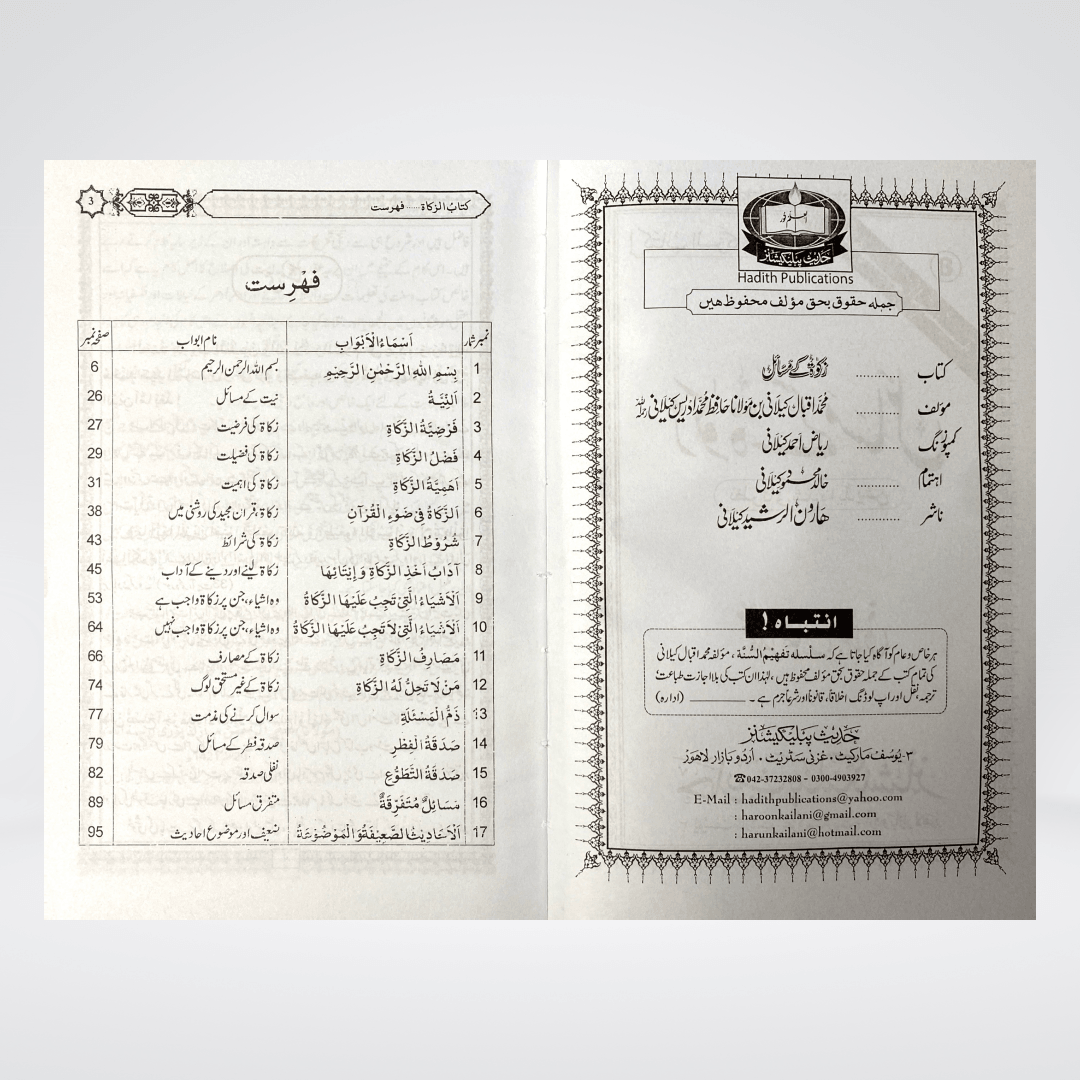 العلم نور
حدیث پبلیکیشنز
Hadith Publications
جملہ حقوق بحق مؤلف محفوظ ھیں
کتاب ............ زکوٰۃ کے مسائل
مؤلف ............ محمد اقبال کیلانی بن مولانا حافظ محمد ادریس کیلانی رحمہ اللہ
کمپوزنگ ............ ریاض احمد کیلانی
اہتمام ............ خالد محمود کیلانی
ناشر ............ ھارون الرشید کیلانی
انتباہ !
ہر خاص و عام کو آگاہ کیا جاتا ہے کہ سلسلہ تفھیم السُّنَّة ، مؤلفہ محمد اقبال کیلانی
کی تمام کتب کے جملہ حقوق بحق مؤلف محفوظ ہیں ، لہٰذا ان کتب کی بلا اجازت طباعت
ترجمہ، نقل اور اپ لوڈنگ اخلاقاً، قانوناً اور شرعاً جرم ہے ۔ ________ (ادارہ)
حدیث پبلیکیشنز
۳- یوسف مارکیٹ ۔ غزنی سٹریٹ ۔ اُردو بازار لاھور
☎042-37232808 - 0300-4903927
E-Mail : hadithpublications@yahoo.com
: haroonkailani@gmail.com
: harunkailani@hotmail.com
کتابُ الزکاۃ......فھرست 3
فِھْرِست
نمبر شمار اَسْمَاءُ الْاَبْوَابِ نام ابواب صفحہ نمبر
1 بِسْمِ اللهِ الرَّحْمٰنِ الرَّحِيْمِ بسم اللہ الرحمن الرحیم 6
2 اَلنِّيَّةُ نیت کے مسائل 26
3 فَرْضِيَّةُ الزَّكَاةِ زکاۃ کی فرضیت 27
4 فَضْلُ الزَّكَاةِ زکاۃ کی فضیلت 29
5 اَهَمِيَّةُ الزَّكَاةِ زکاۃ کی اہمیت 31
6 اَلزَّكَاةُ فِىْ ضَوْءِ الْقُرْآنِ زکاۃ، قرآن مجید کی روشنی میں 38
7 شُرُوْطُ الزَّكَاةِ زکاۃ کی شرائط 43
8 آدَابُ اَخْذِ الزَّكَاةِ وَ اِيْتَائِهَا زکاۃ لینے اور دینے کے آداب 45
9 اَلْاَشْيَاءُ الَّتِىْ تَجِبُ عَلَيْهَا الزَّكَاةُ وہ اشیاء، جن پر زکاۃ واجب ہے 53
10 اَلْاَشْيَاءُ الَّتِىْ لَا تَجِبُ عَلَيْهَا الزَّكَاةُ وہ اشیاء، جن پر زکاۃ واجب نہیں 64
11 مَصَارِفُ الزَّكَاةِ زکاۃ کے مصارف 66
12 مَنْ لَا تَحِلُّ لَهُ الزَّكَاةُ زکاۃ کے غیر مستحق لوگ 74
13 ذَمُّ الْمَسْئَلَةِ سوال کرنے کی مذمت 77
14 صَدَقَةُ الْفِطْرِ صدقہ فطر کے مسائل 79
15 صَدَقَةُ التَّطَوُّعِ نفلی صدقہ 82
16 مَسَائِلٌ مُتَفَرِّقَةٌ متفرق مسائل 89
17 اَلْاَحَادِيْثُ الضَّعِيْفَةُ وَ الْمَوْضُوْعَةُ ضعیف اور موضوع احادیث 95